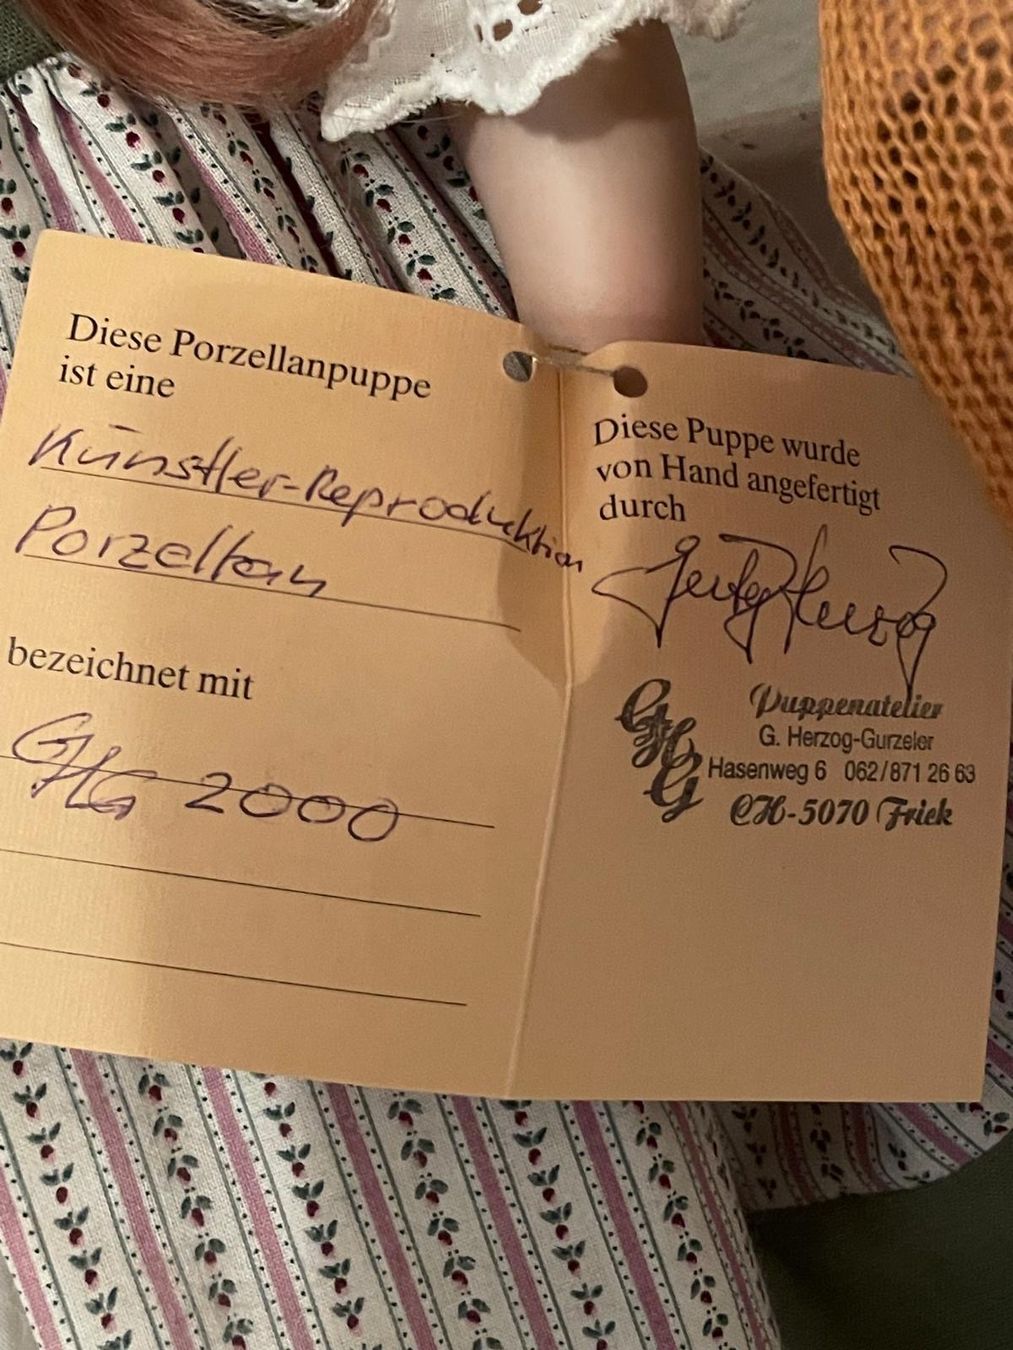 Diese Porzellanpuppe
ist eine
Künstler-Reproduktion
Porzellan
bezeichnet mit
GHG 2000
Diese Puppe wurde
von Hand angefertigt
durch
Herzog
GHG
Puppenatelier
G. Herzog-Gurzeler
Hasenweg 6 062/871 26 63
CH-5070 Frick